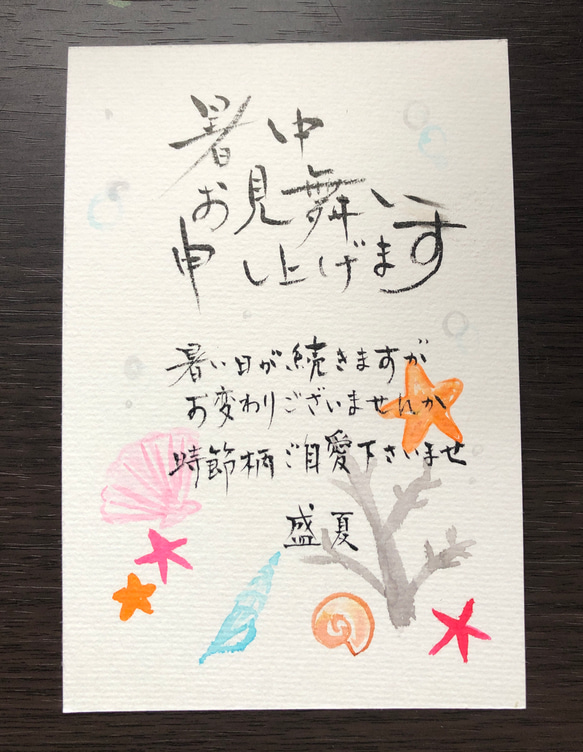 暑中
お見舞い
申し上げます
暑い日が続きますが
お変わりございませんか
時節柄ご自愛下さいませ
盛夏